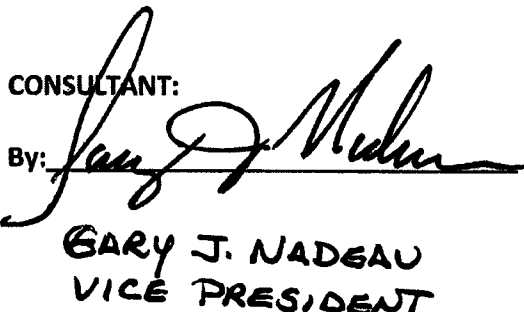 CONSULTANT:
By: Gary J. Nadeau
GARY J. NADEAU
VICE PRESIDENT